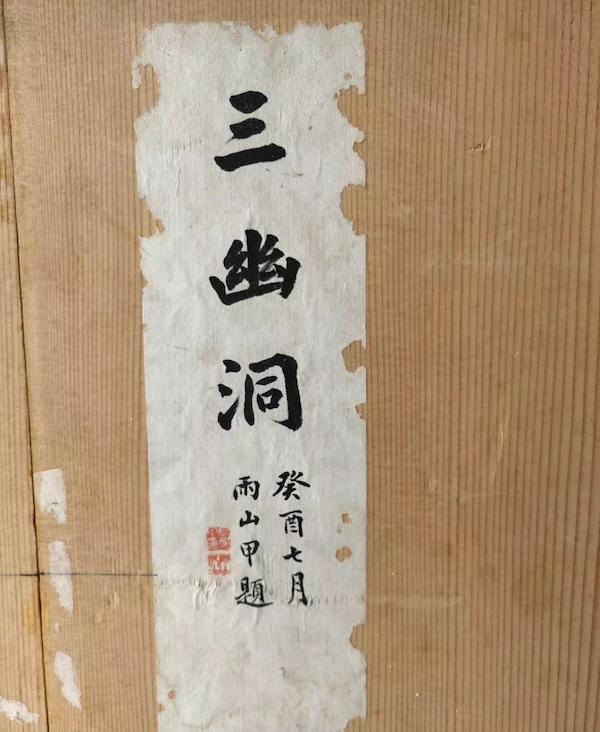 三幽洞
癸酉七月
雨山甲題